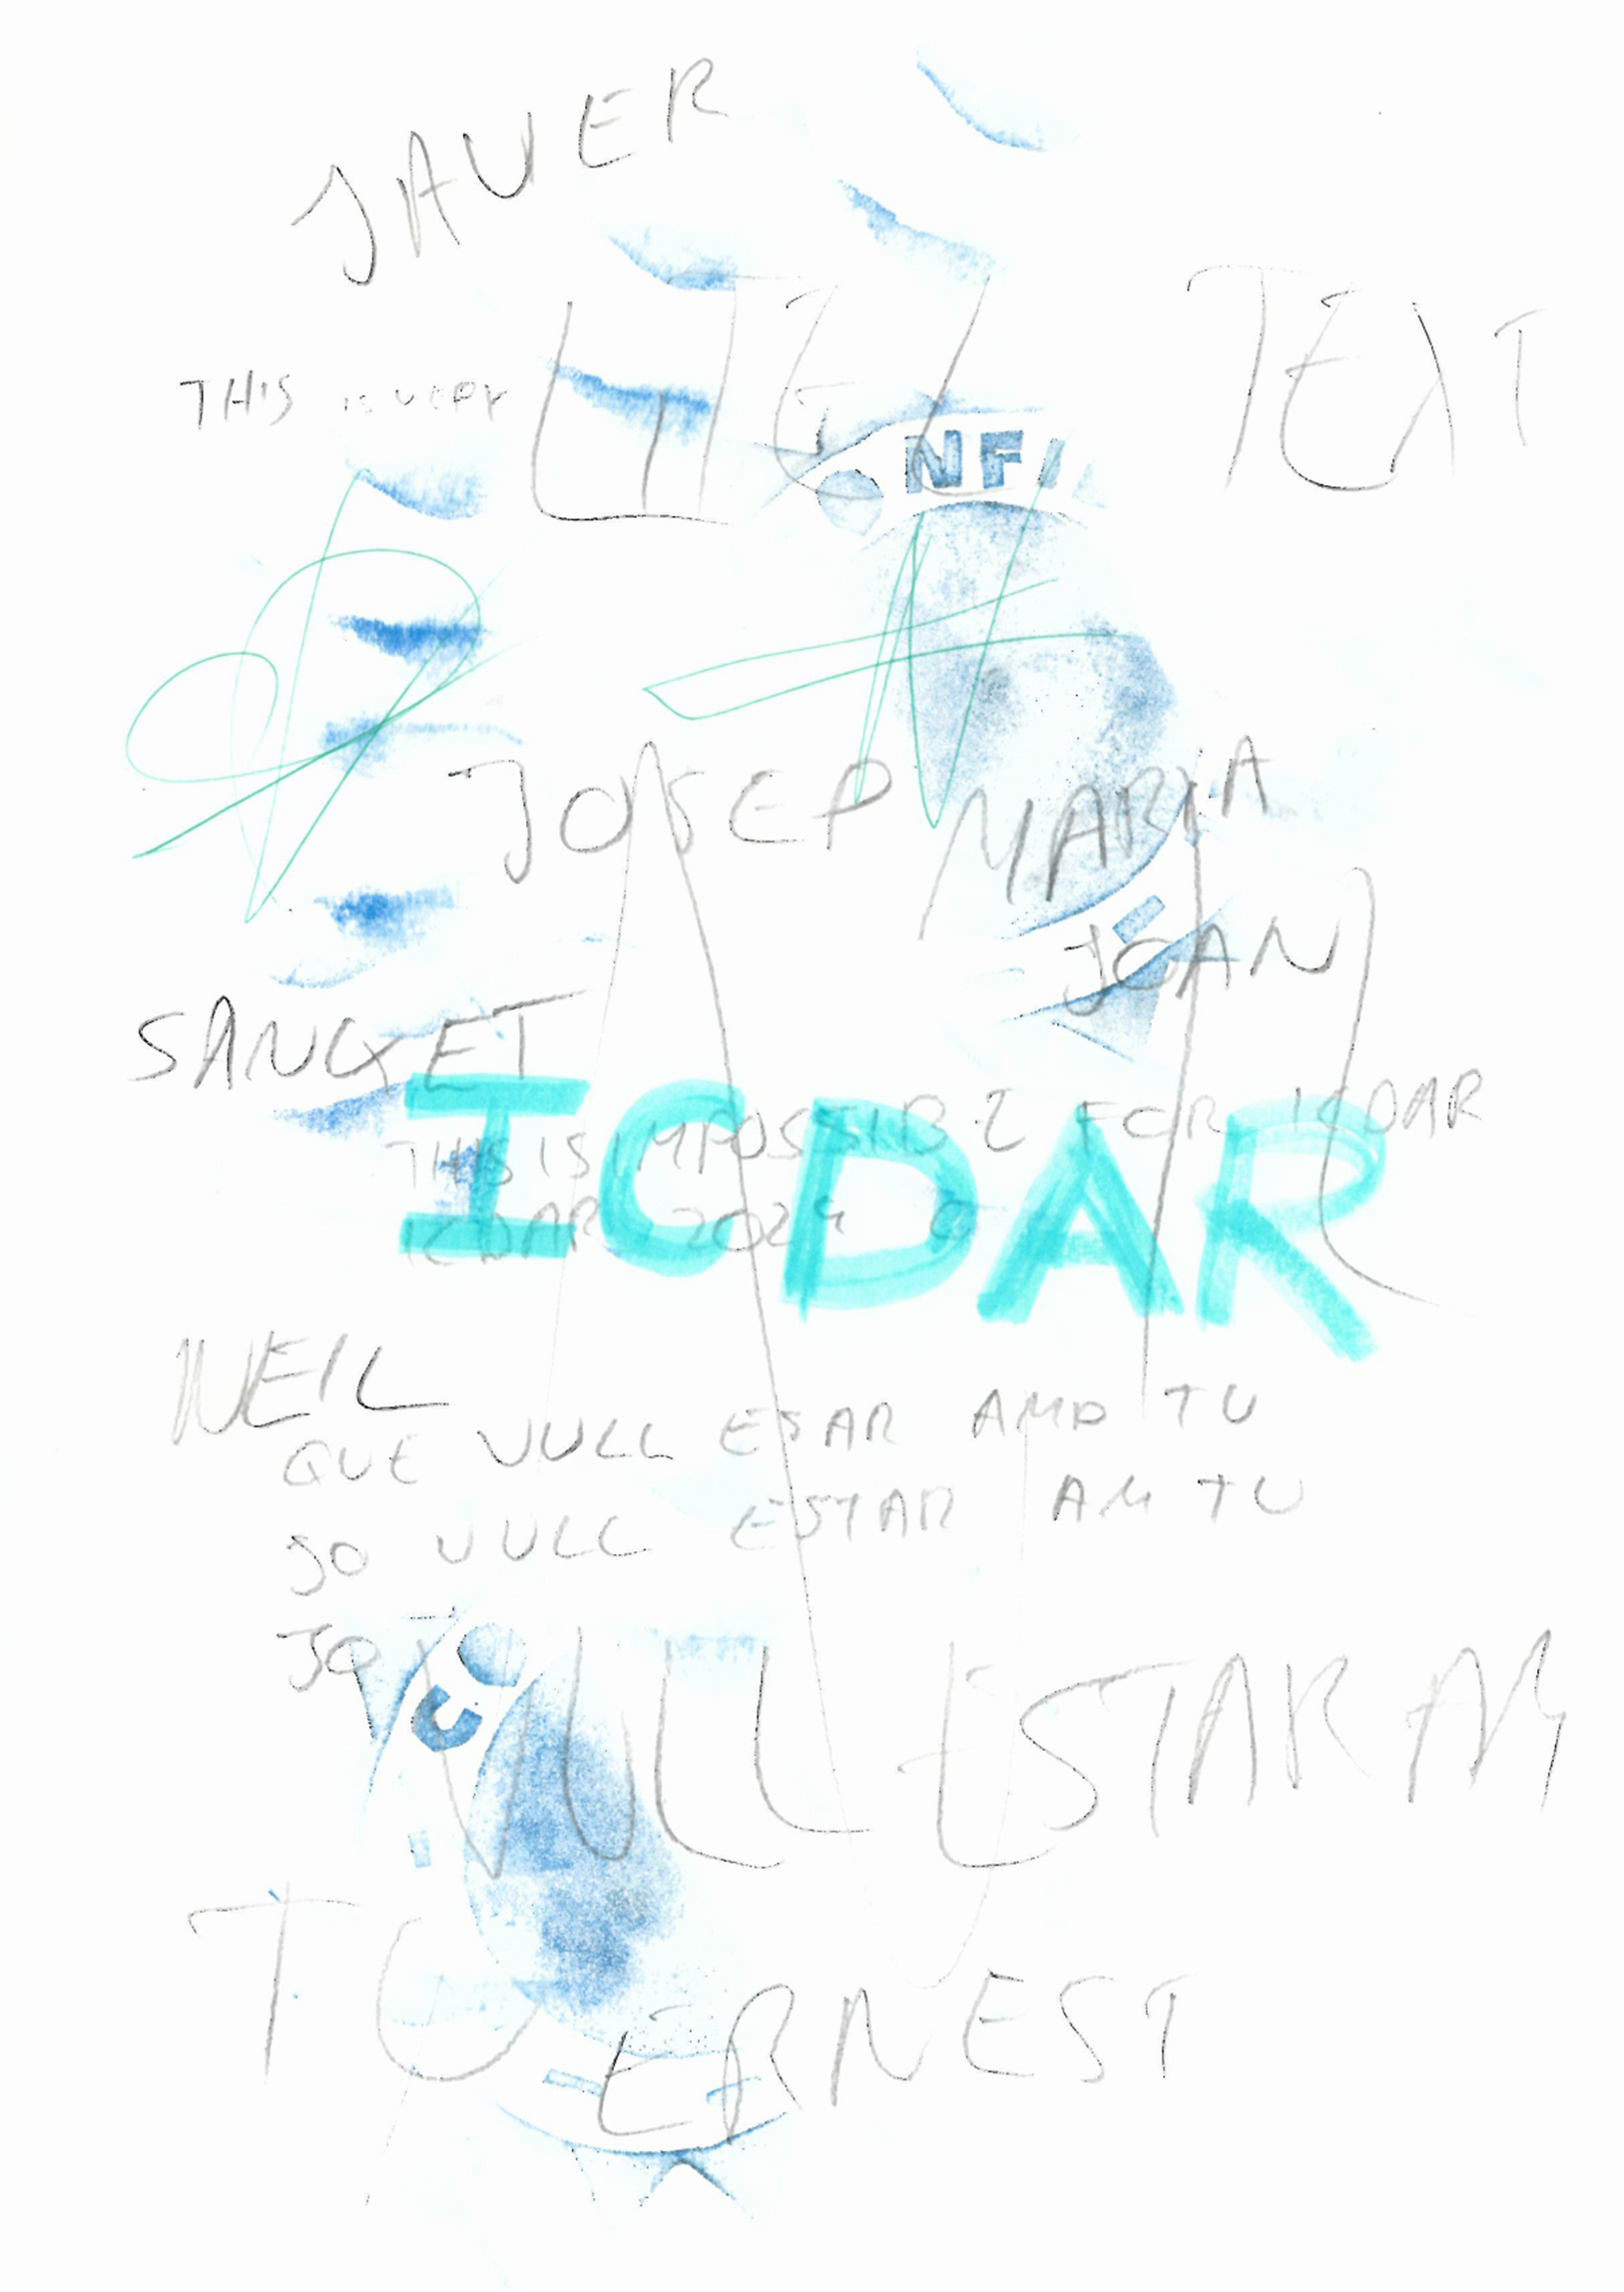 JAVER
THIS IS VERY LITEL TEXT
NFI
JOSEP MARIA
JOAN
SANKET
ICDAR
THIS IS IMPOSSIBLE FOR ICDAR
ICDAR 2024
NEIL
QUE VULL ESAR AMB TU
JO VULL ESTAR AM TU
JO VULL ESTAR AM
TU
C
ERNEST